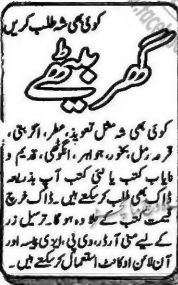 کوئی بھی شے طلب کریں
گھر بیٹھے
کوئی بھی شے مثل تعویذ، عطر، اگربتی،
قرعہ رمل، بخور، جواہر، انگوٹھی، قدیم و
نایاب کتب یا نئی کتب آپ بذریعہ
ڈاک بھی طلب کر سکتے ہیں۔ ڈاک خرچ
قیمت کتب کے علاوہ ہوگا۔ ترسیل زر
کے لیے منی آرڈر، وی پی، ایزی پیسہ اور
آن لائن اکاؤنٹ استعمال کر سکتے ہیں۔